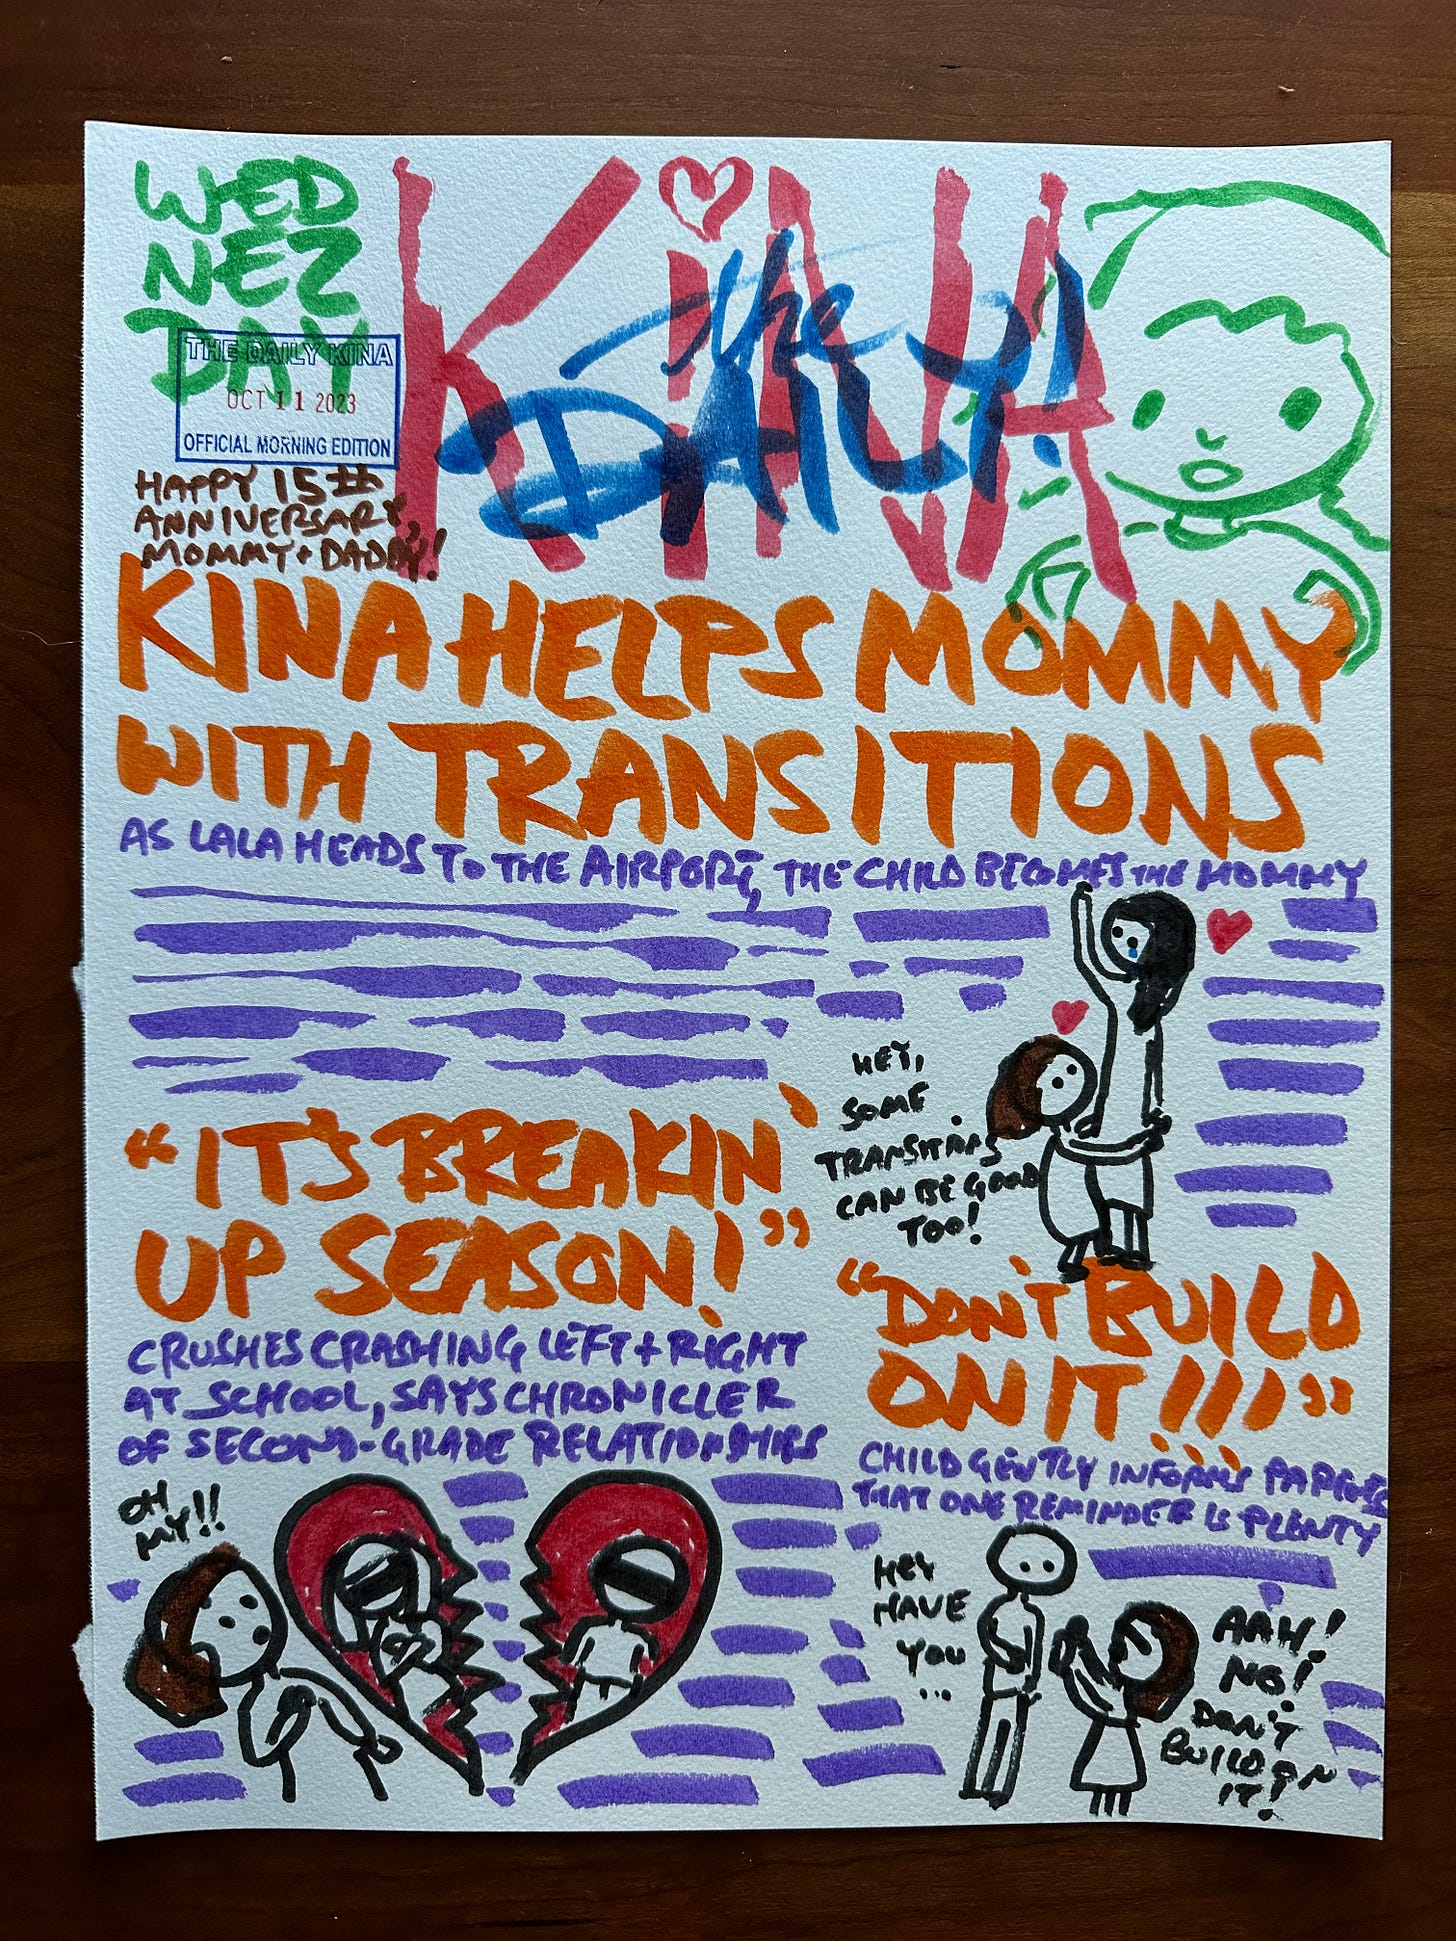 WED
NEZ
DAY
THE DAILY KINA
OCT 11 2023
OFFICIAL MORNING EDITION
HAPPY 15th
ANNIVERSARY,
MOMMY + DADDY!
The
DAILY
KiNA
KINA HELPS MOMMY
WITH TRANSITIONS
AS LALA HEADS TO THE AIRPORT, THE CHILD BECOMES THE MOMMY
HEY,
SOME
TRANSITIONS
CAN BE GOOD
TOO!
"IT'S BREAKIN'
UP SEASON!"
CRUSHES CRASHING LEFT + RIGHT
AT SCHOOL, SAYS CHRONICLER
OF SECOND-GRADE RELATIONSHIPS
OH
MY!!
"DON'T BUILD
ON IT!!!"
CHILD GENTLY INFORMS
THAT ONE REMINDER IS PLENTY
HEY
HAVE
YOU
...
AAH!
NO!
DON'T
BUILD ON
IT!